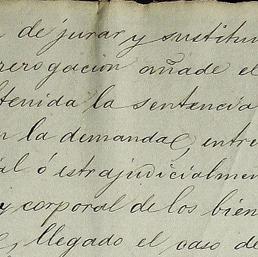 de jurar y sustitu
rerogacion añade el
tenida la sentencia
n la demanda, entre
al ó estrajudicialmen
y corporal de los bien
llegado el caso de